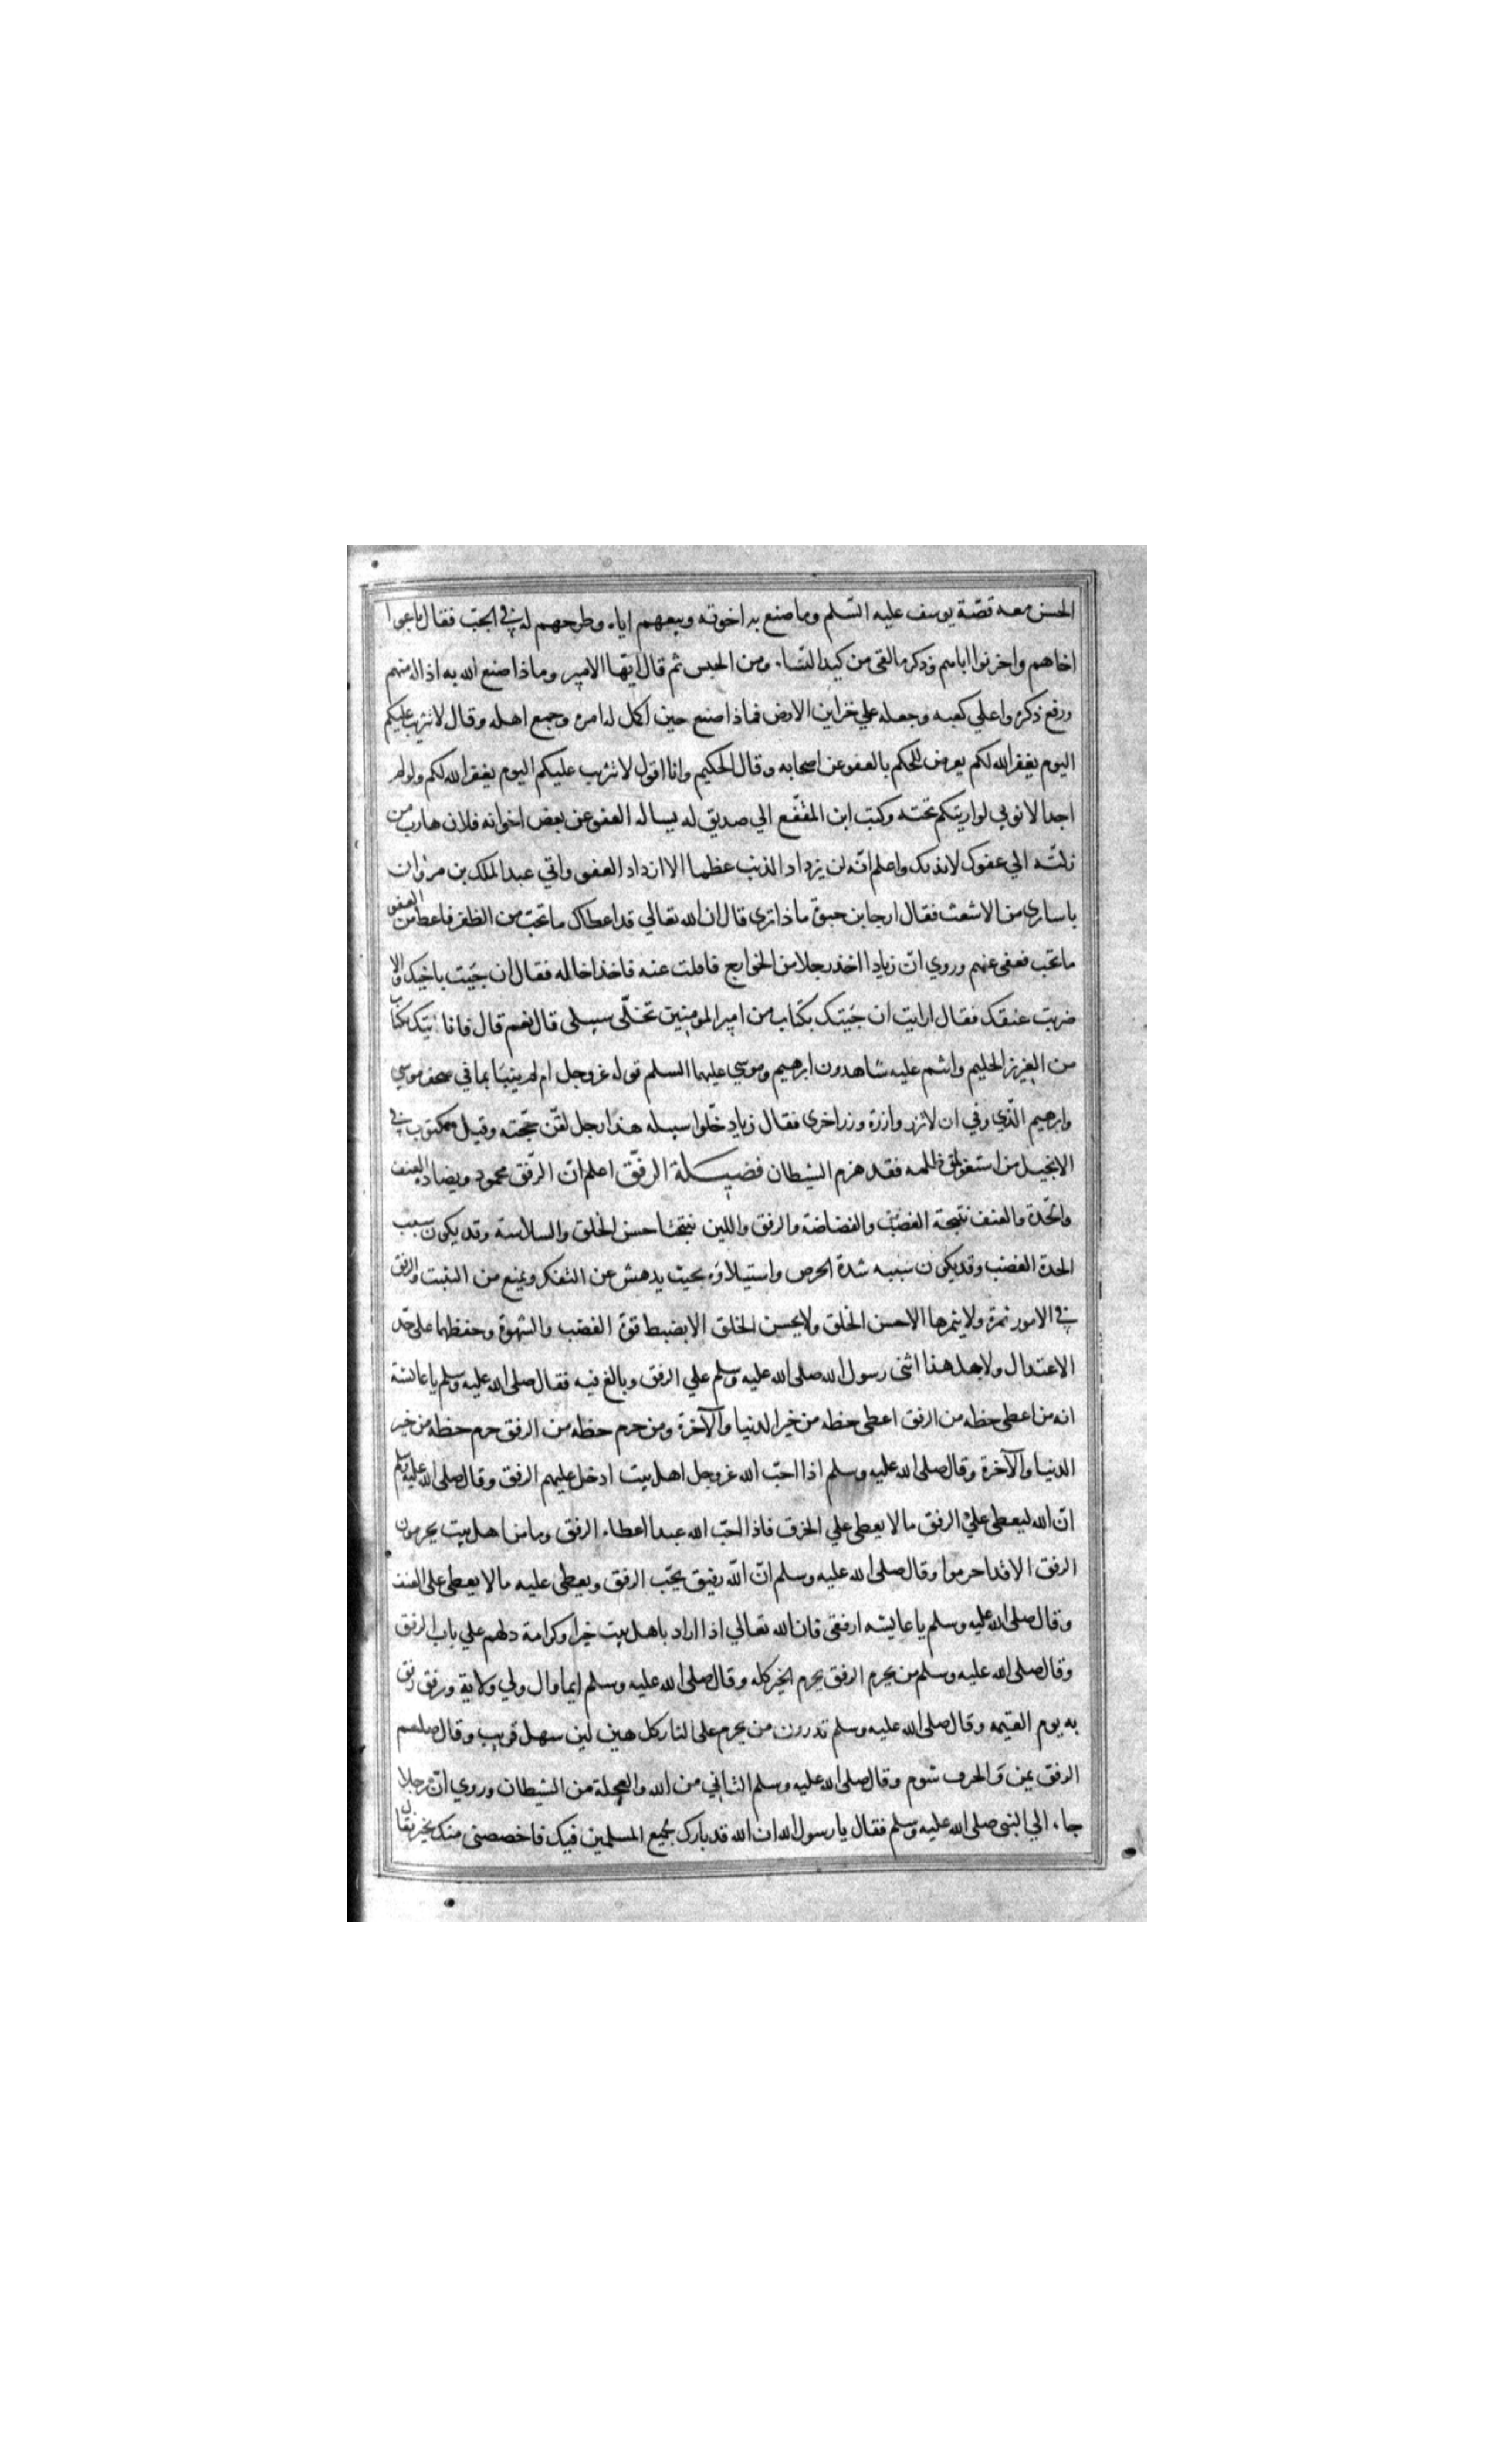 الحسن معه قصّة يوسف عليه السّلم وما صنع به اخوته وبيعهم اياه وطرحهم له في الجبّ فقال باعوا
اخاهم واحزنوا اباهم وذكر ما لقي من كيد النساء ومن الحبس ثم قال ايّها الامير وماذا صنع الله به اذاله منهم
ورفع ذكره واعلي كعبه وجعله علي خزاين الارض فماذا صنع حين اكمل له امره وجمع اهله وقال لا تثريب عليكم
اليوم يغفر الله لكم يعرض للحكم بالعفو عن اصحابه وقال الحكيم وانا اقول لا تثريب عليكم اليوم يغفر الله لكم ولو لم
اجد الا ثوبي لواريتكم تحته وكتب ابن المقفّع الي صديق له يساله العفو عن بعض اخوانه فلان هارب من
زلّته الي عفوك لايذ بك واعلم انّه لن يزداد الذنب عظما الا ازداد العفو واتي عبد الملك بن مروان
باساري من الاشعث فقال ارجا بن حيوة ماذا تري قال ان الله تعالي قد اعطاك ما تحبّ من الظفر فاعط من العفو
ما تحب فعفي عنهم وروي انّ زيادا اخذ رجلا من الخوارج فافلت عنه فاخذ اخا له فقال ان جيت باخيك والا
ضربت عنقك فقال ارايت ان جيتك بكتاب من امير المومنين تخلّي سبيلي قال نعم قال فانا اتيتك بكتاب
من العزيز الحليم واثنم عليه شاهدون ابرهيم وموسي عليهما السلم قوله عز وجل ام لم ينبّا بما في صحف موسي
وابرهيم الّذي وفي ان لا تزر وازرة وزر اخري فقال زياد خلّوا سبيله هذا رجل لقّن حجّته وقيل مكتوب في
الانجيل من استغفر لمن ظلمه فقد هزم الشيطان فضيلة الرفق اعلم انّ الرّفق محمود ويضاده العنف
والحّدة والعنف نتيجة الغضب والفضاضة والرفق واللين نتيجتا حسن الخلق والسلاسة وقد يكون سبب
الحدة الغضب وقد يكون سببه شدة الحرص واستيلاوه بحيث يدهش عن التفكر ويمنع من التثبت والرفق
في الامور ثمرة ولا يثمرها الا حسن الخلق ولا يحسن الخلق الا بضبط قوة الغضب والشهوة وحفظهما علي حدّ
الاعتدال ولاجل هذا اثني رسول الله صلى الله عليه وسلم علي الرفق وبالغ فيه فقال صلى الله عليه وسلم يا عائشة
انه من اعطي حظه من الرفق اعطي حظه من خير الدنيا والآخرة ومن حرم حظه من الرفق حرم حظه من خير
الدنيا والآخرة وقال صلى الله عليه وسلم اذا احبّ الله عز وجل اهل بيت ادخل عليهم الرفق وقال صلى الله عليه وسلم
انّ الله ليعطي علي الرفق ما لا يعطي علي الخرق فاذا احبّ الله عبدا اعطاه الرفق وما من اهل بيت يحرمون
الرفق الا قد احرموا وقال صلى الله عليه وسلم انّ الله رفيق يحّب الرفق ويعطي عليه ما لا يعطي علي العنف
وقال صلى الله عليه وسلم يا عايشه ارفقي فان الله تعالي اذا اراد باهل بيت خيرا وكرامة دلهم علي باب الرفق
وقال صلى الله عليه وسلم من يحرم الرفق يحرم الخير كله وقال صلى الله عليه وسلم ايما وال ولي ولاية ورفق رفق
به يوم القيمه وقال صلى الله عليه وسلم تدرون من يحرم على النار كل هين لين سهل قريب وقال صلعم
الرفق يمن والخرق شوم وقال صلى الله عليه وسلم التاني من الله والعجلة من الشيطان وروي انّ رجلا
جاء الي النبي صلى الله عليه وسلم فقال يا رسول الله ان الله قد بارك لجميع المسلمين فيك فاخصصني منك بخير فقال